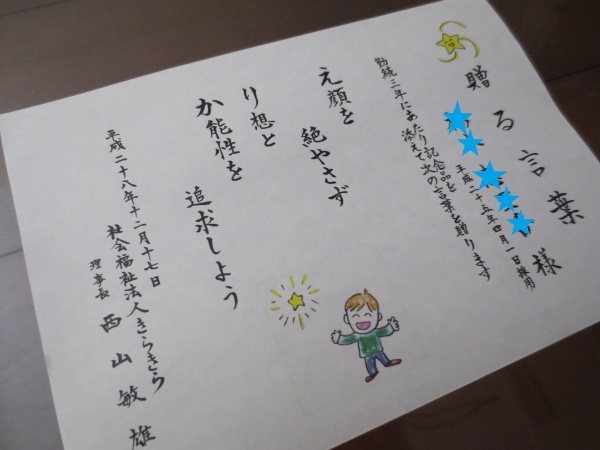 贈る言葉
様
平成二十五年四月一日採用
勤続三年にあたり記念品を
添えて次の言葉を贈ります
え顔を 絶やさず
り想と
か能性を 追求しよう
平成二十八年十二月十七日
社会福祉法人きらきら
理事長 西山敏雄